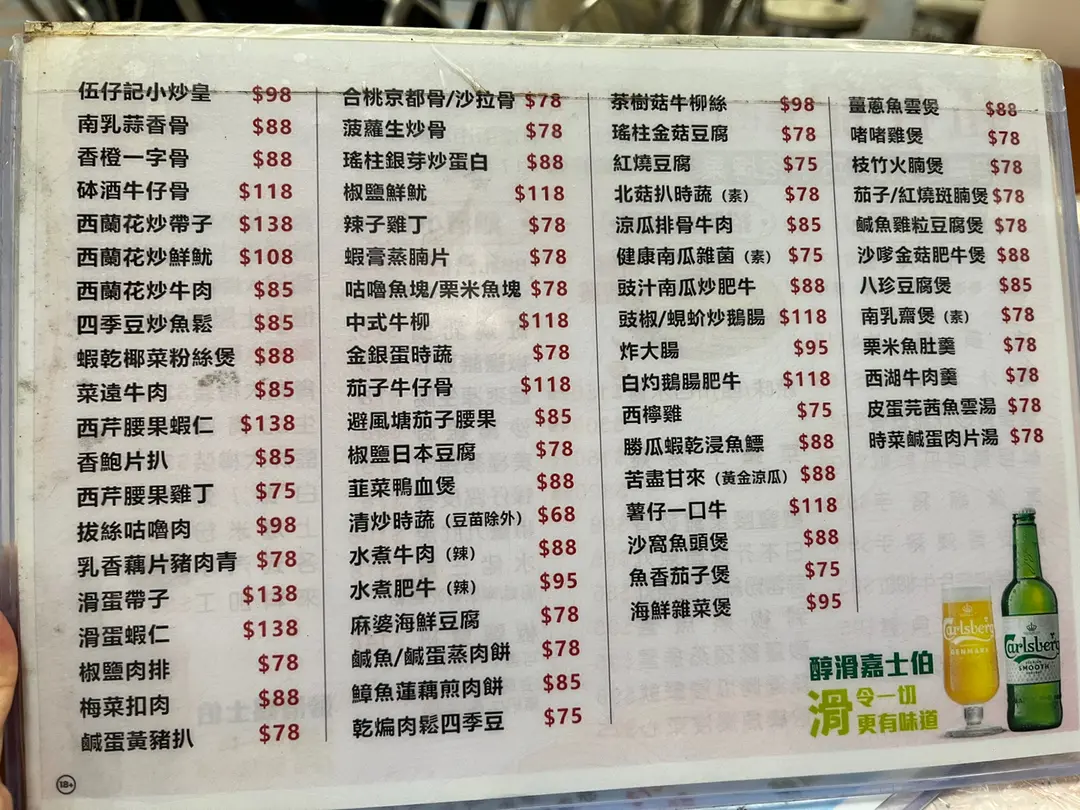 伍仔記小炒皇 $98
南乳蒜香骨 $88
香橙一字骨 $88
砵酒牛仔骨 $118
西蘭花炒帶子 $138
西蘭花炒鮮魷 $108
西蘭花炒牛肉 $85
四季豆炒魚鬆 $85
蝦乾椰菜粉絲煲 $88
菜遠牛肉 $85
西芹腰果蝦仁 $138
香鮑片扒 $85
西芹腰果雞丁 $75
拔絲咕嚕肉 $98
乳香藕片豬肉青 $78
滑蛋帶子 $138
滑蛋蝦仁 $138
椒鹽肉排 $78
梅菜扣肉 $88
鹹蛋黃豬扒 $78
合桃京都骨/沙拉骨 $78
菠蘿生炒骨 $78
瑤柱銀芽炒蛋白 $88
椒鹽鮮魷 $118
辣子雞丁 $78
蝦膏蒸腩片 $78
咕嚕魚塊/栗米魚塊 $78
中式牛柳 $118
金銀蛋時蔬 $78
茄子牛仔骨 $118
避風塘茄子腰果 $85
椒鹽日本豆腐 $78
韮菜鴨血煲 $88
清炒時蔬(豆苗除外) $68
水煮牛肉(辣) $88
水煮肥牛(辣) $95
麻婆海鮮豆腐 $78
鹹魚/鹹蛋蒸肉餅 $78
鱆魚蓮藕煎肉餅 $85
乾煸肉鬆四季豆 $75
茶樹菇牛柳絲 $98
瑤柱金菇豆腐 $78
紅燒豆腐 $75
北菇扒時蔬(素) $78
涼瓜排骨牛肉 $85
健康南瓜雜菌(素) $75
豉汁南瓜炒肥牛 $88
豉椒/蜆蚧炒鵝腸 $118
炸大腸 $95
白灼鵝腸肥牛 $118
西檸雞 $75
勝瓜蝦乾浸魚鰾 $88
苦盡甘來(黃金涼瓜) $88
薯仔一口牛 $118
沙窩魚頭煲 $88
魚香茄子煲 $75
海鮮雜菜煲 $95
薑蔥魚雲煲 $88
啫啫雞煲 $78
枝竹火腩煲 $78
茄子/紅燒斑腩煲 $78
鹹魚雞粒豆腐煲 $78
沙嗲金菇肥牛煲 $88
八珍豆腐煲 $85
南乳齋煲(素) $78
栗米魚肚羹 $78
西湖牛肉羹 $78
皮蛋芫茜魚雲湯 $78
時菜鹹蛋肉片湯 $78
Carlsberg
DENMARK
Carlsberg
SMOOTH
醇滑嘉士伯
滑令一切
更有味道
18+